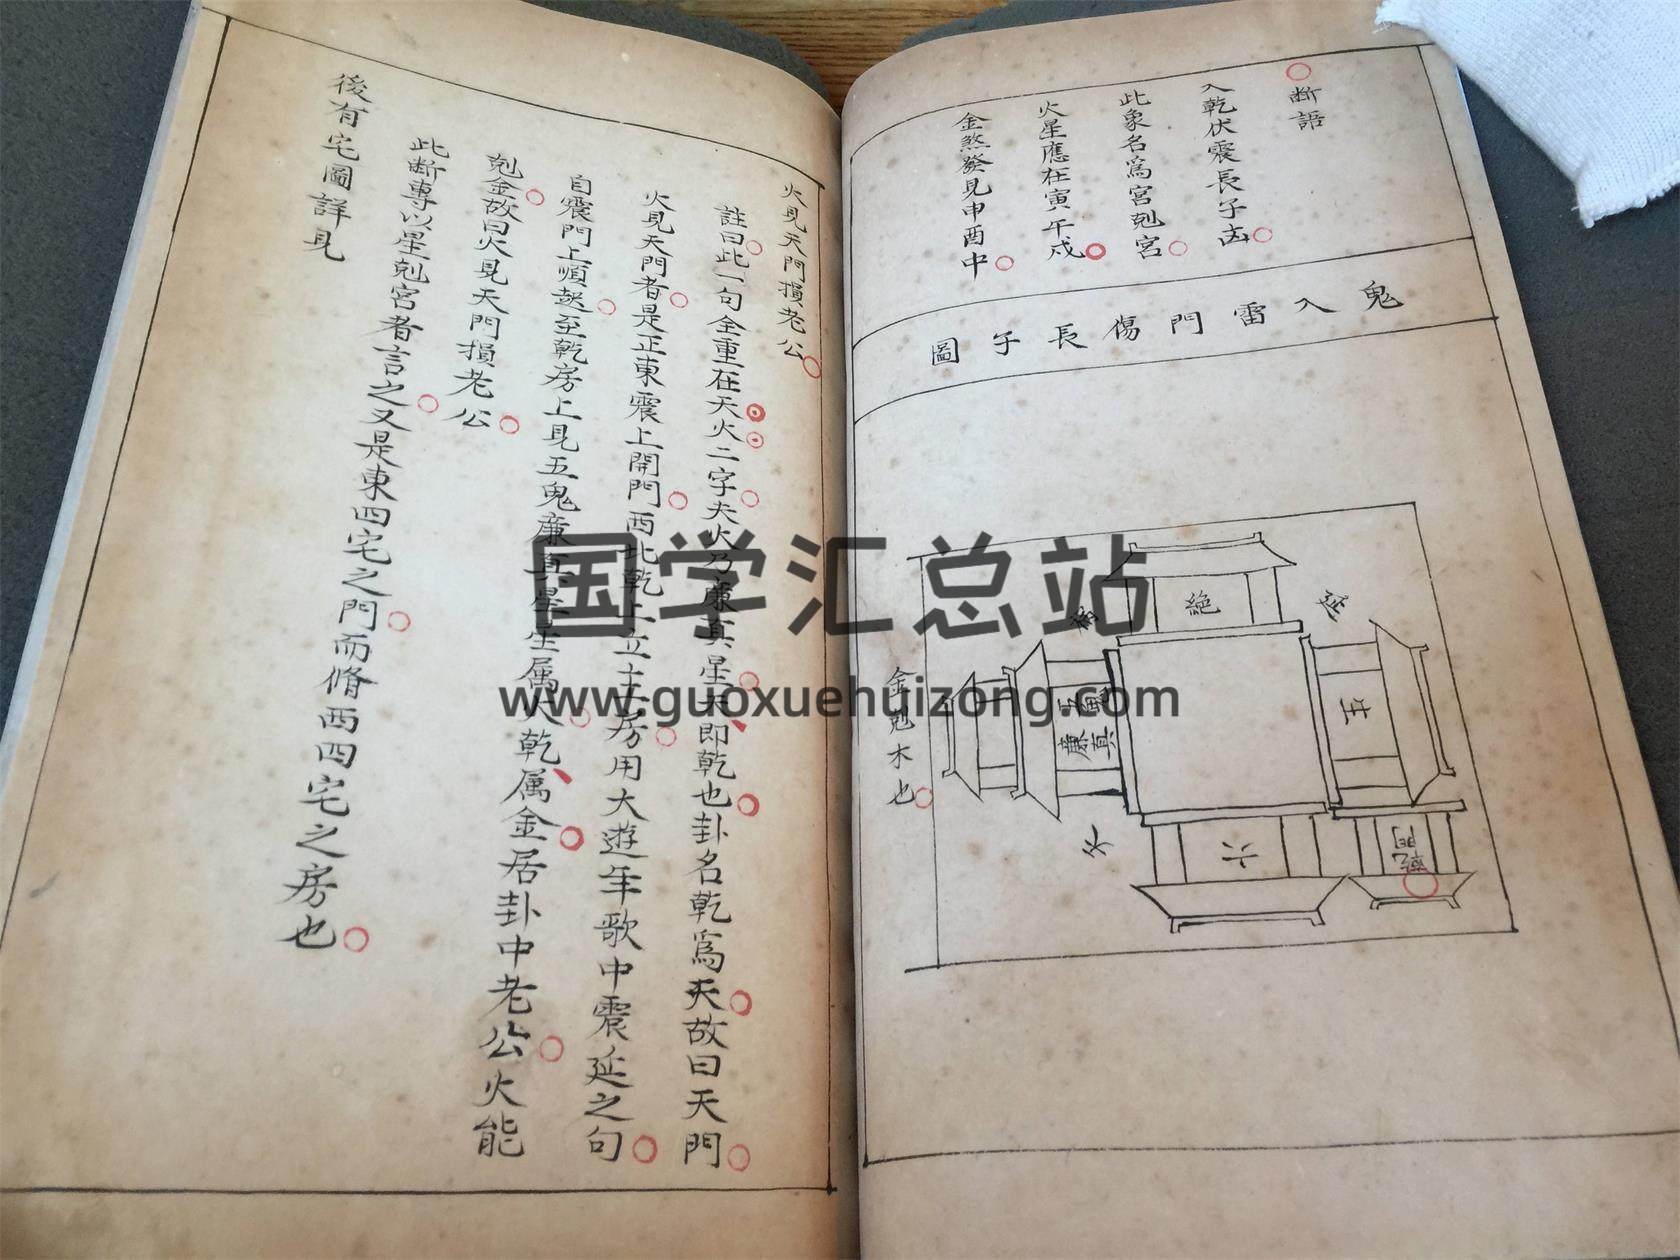 断語
入乾伏震長子凶
此象名爲宮剋宮
火星應在寅午戍
金煞發見申酉中
鬼入雷門傷長子圖
絶
延
生
乾門
六
五鬼
廉真
金剋木也
火見天門損老公
註曰此一句全重在天火二字夫火乃廉真星天即乾也卦名乾爲天故曰天門
火見天門者是正東震上開門西北乾上立主房用大遊年歌中震延之句
自震門上順起至乾房上見五鬼廉真星星属火乾属金居卦中老公火能
剋金故曰火見天門損老公
此断專以星剋宮者言之又是東四宅之門而脩西四宅之房也
後有宅圖詳見
国学汇总站
www.guoxuehuizong.com